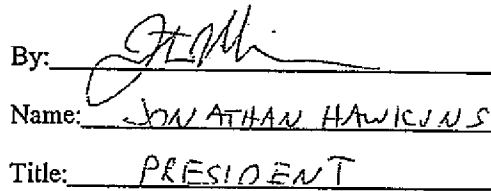 By:
Name: JONATHAN HAWKINS
Title: PRESIDENT